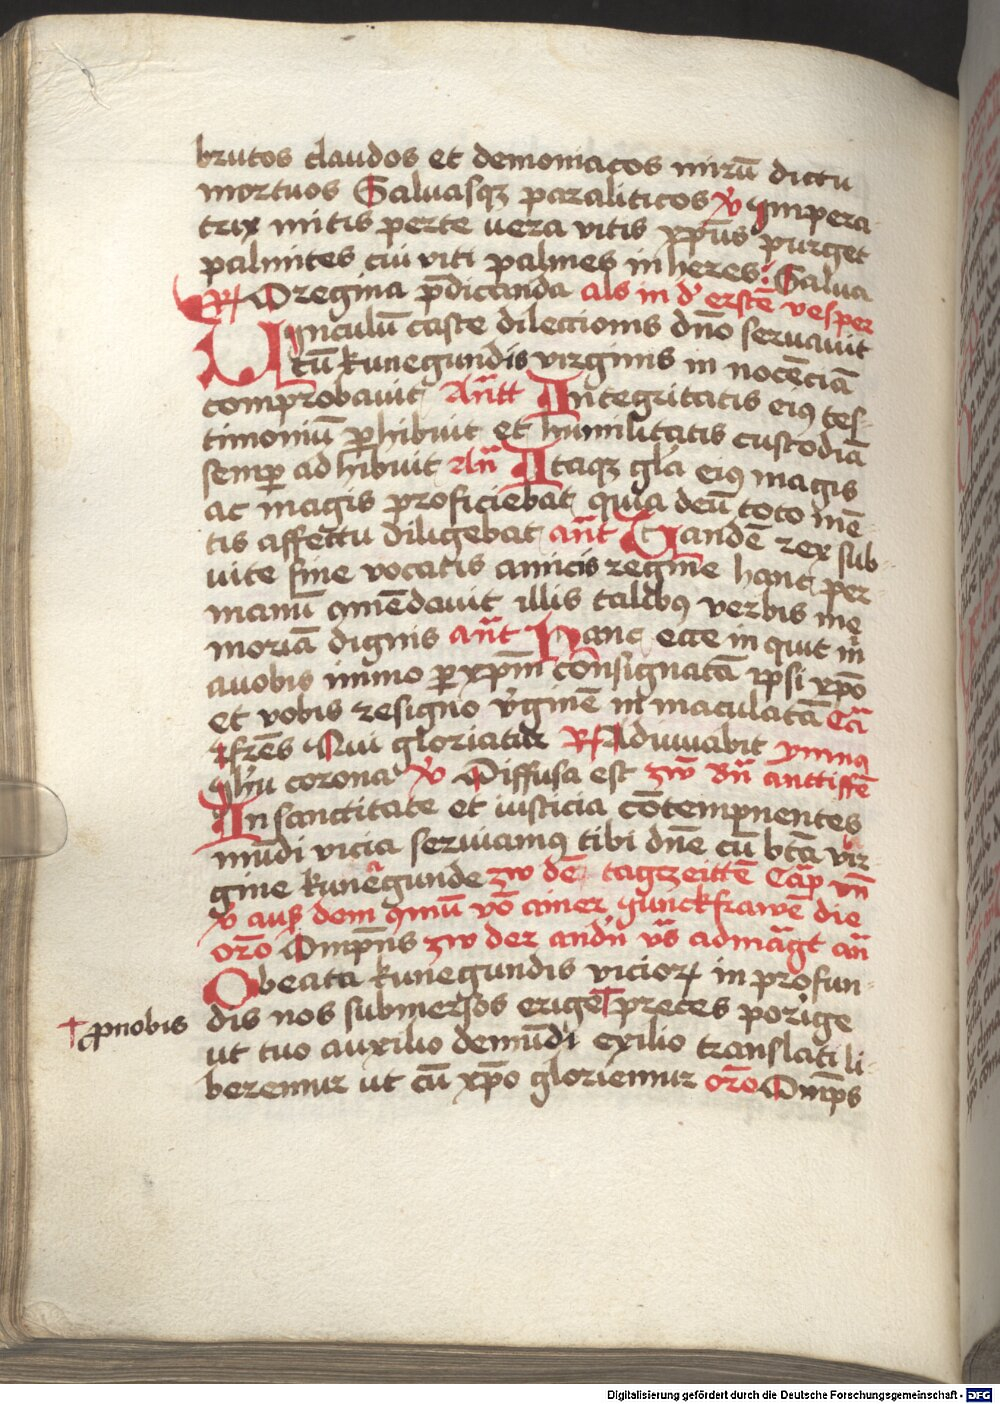 brutos claudos et demoniacos mirū dictu
mortuos Saluasqꝫ paraliticos ℣ Impera-
trix mitis perte uera vitis xp̄us purget
palmites cui viti palmes inheres: Salua
℟ O regina p̄dicanda als in d' erstē vesper
Uinculū caste dilectionis dn̄o seruauit
cū kunegundis virginis in nocēciā
comprobauit An̄tt Integritatis eiꝯ tes-
timoniū ꝑhibuit et humilitatis custodiā
semꝑ adhibuit An̄ Itaqꝫ gl'a eiꝯ magis
ac magis proficiebat quia deū toto mē-
tis affectu diligebat an̄t Eandē rex sub
uite fine vocatis amicis regine hanc per
manū ꝯmēdauit illis talibꝯ verbis me
moriā dignis an̄t Hanc ecce in quit m̄
auobis immo ꝑ xp̄m cōnsignatā ip̄si xp̄o
et vobis resigno v'ginē in maculatā Ca̅
fr̄es Qui gloriatur ℟ Adiuuabit ymnꝯ
Ih'u corona ℣ Diffusa est zw̄ Bn̄ anttiffē
In sanctitate et iusticia cōtempnentes
mūdi vicia seruiamꝯ tibi dn̄e cū bt̄a vir-
gine kunegunde zw dē tagzeittē Cap̄ vn̄
℣ auß dem ꝯmū vō ainer gunckfrawē die
or̄o Omp̄ns zw der andn̄ v̄s admāgt an̄
O beata kunegundis vicioꝝ in profun-
dis nos submersos erige † preces porige
† ꝓnobis
ut tuo auxilio demūdi exilio translati li-
beremur ut cū xp̄o gloriemur or̄o Omp̄s
Digitalisierung gefördert durch die Deutsche Forschungsgemeinschaft - DFG